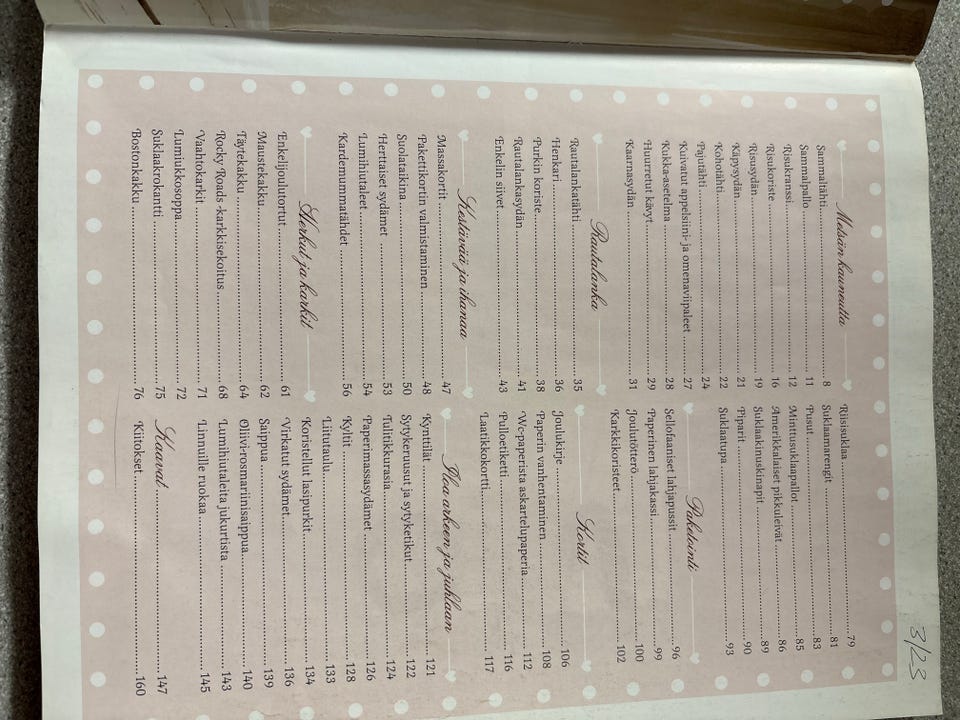 3/23
Metsän kauneutta
Sammaltähti 8
Sammalpallo 11
Risukranssi 12
Risukoriste 16
Risusydän 19
Käpysydän 21
Kohotähti 22
Pajutähti 24
Kuivatut appelsiini- ja omenaviipaleet 27
Kukka-asetelma 28
Huurretut kävyt 29
Kaarnasydän 31
Rautalanka
Rautalankatähti 35
Henkari 36
Purkin koriste 38
Rautalankasydän 41
Enkelin siivet 43
Kestävää ja ihanaa
Massakortit 47
Pakettikortin valmistaminen 48
Suolataikina 50
Herttaiset sydämet 53
Lumihiutaleet 54
Kardemummatähdet 56
Herkut ja karkit
Enkelijoulutortut 61
Maustekakku 62
Täytekakku 64
Rocky Roads -karkkisekoitus 68
Vaahtokarkit 71
Lumiukkosoppa 72
Suklaakrokantti 75
Bostonkakku 76
Riisisuklaa 79
Suklaamarengit 81
Pusut 83
Minttusuklaapallot 85
Amerikkalaiset pikkuleivät 86
Suklaakinuskinapit 89
Piparit 90
Suklaatupa 93
Paketointi
Sellofaaniset lahjapussit 96
Paperinen lahjakassi 99
Joulutötterö 100
Karkkikoristeet 102
Kortit
Joulukirje 106
Paperin vanhentaminen 108
Wc-paperista askartelupaperia 112
Pulloetiketti 116
Laatikkokortti 117
Iloa arkeen ja juhlaan
Kynttilät 121
Sytykeruusut ja sytyketikut 122
Tulitikkurasia 124
Paperimassasydämet 126
Kyltit 128
Liitutaulu 133
Koristellut lasipurkit 134
Virkatut sydämet 136
Saippua 139
Oliivi-rosmariinisaippua 140
Lumihiutaleita jukurtista 143
Linnuille ruokaa 145
Kaavat 147
Kiitokset 160